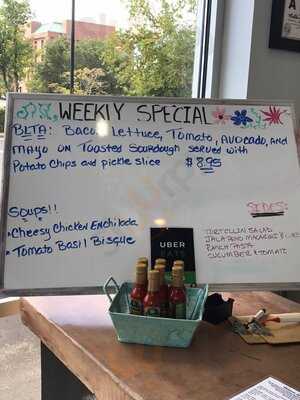 WEEKLY SPECIAL
BLTA: Bacon Lettuce, Tomato, Avocado, and
Mayo on Toasted Sourdough served with
Potato Chips and pickle slice $8.95
Soups!!
• Cheesy Chicken Enchilada
• Tomato Basil Bisque
SIDES:
TORTELLINI SALAD
JALAPENO MACARONI &
RANCH PASTA
CUCUMBER & TOMATO
UBER
EATS